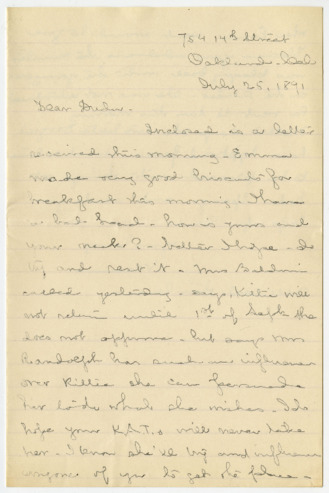 754 14th Street
Oakland - Cal
July 25, 1891
Dear
Inclosed is a letter
received this morning - Emma
made very good biscuits for
breakfast this morning. I have
a bad head - how is yours and
your neck? - better I hope - do
try and rest it - Mrs Baldwin
called yesterday - says, Kittie will
not return until 1st of Sept. She
does not approve - but says Mrs
Randolph has such an influence
over Kittie she can persuade
her to do what she wishes - I do
hope your K.A.T.s will never take
her. I know she'll try and influence
anyone of you to get the place -